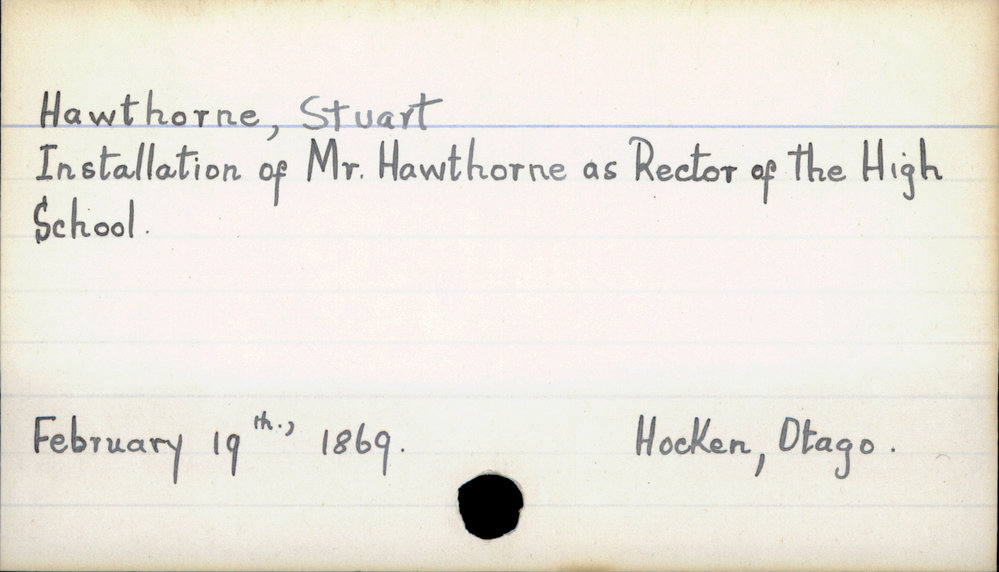 Hawthorne, Stuart
Installation of Mr. Hawthorne as Rector of the High
School.
February 19th., 1869. Hocken, Otago.